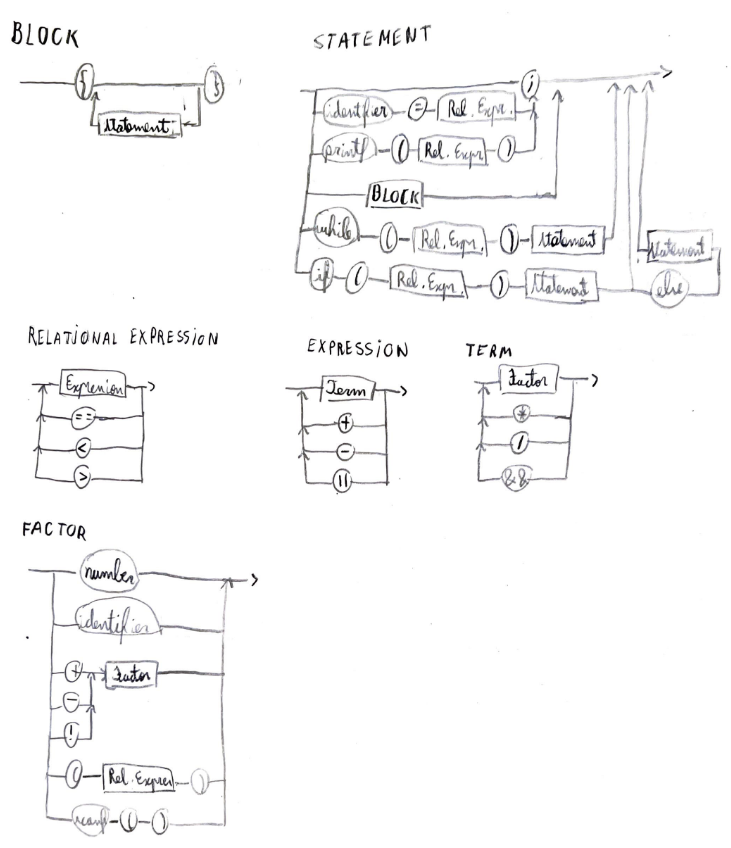 BLOCK
{ }
Statement
STATEMENT
;
identifier = Rel. Expr.
printf ( Rel. Expr. )
BLOCK
while ( Rel. Expr. ) Statement
Statement
if ( Rel. Expr. ) Statement else
RELATIONAL EXPRESSION
Expression
==
<
>
EXPRESSION
Term
+
-
||
TERM
Factor
*
/
&&
FACTOR
number
identifier
+ Factor
-
!
( Rel. Expres )
scanf ( )